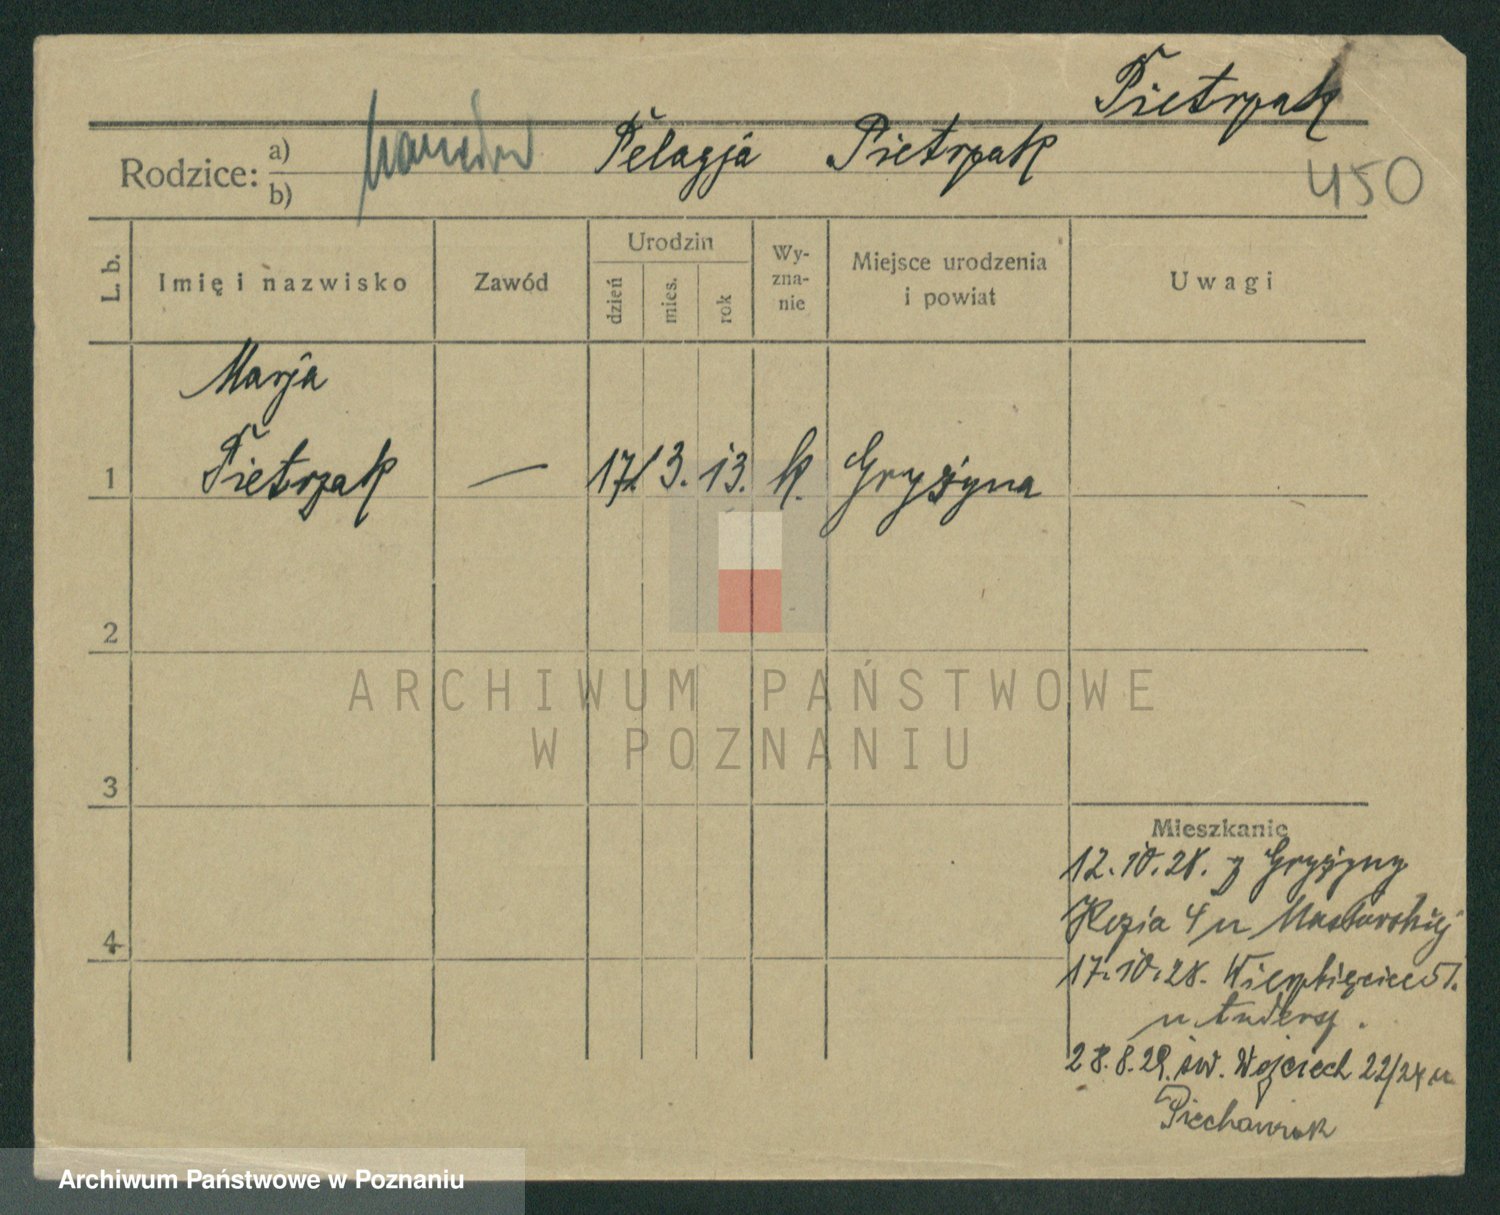 Pietrzak
Rodzice: a) b) Pelagja Pietrzak
450
L. b.
Imię i nazwisko
Zawód
Urodzin
dzień
mies.
rok
Wy-
zna-
nie
Miejsce urodzenia
i powiat
Uwagi
Marja
1 Pietrzak — 17. 3. 13. k. Gryżyna
2
3
4
Mieszkanie
12.10.28. z Gryżyny
4 u
17.10.28. Wierzbięcice 51.
u
28.8.29. św. Wojciech 22/24 u
Piechowiak
ARCHIWUM PAŃSTWOWE
W POZNANIU
Archiwum Państwowe w Poznaniu